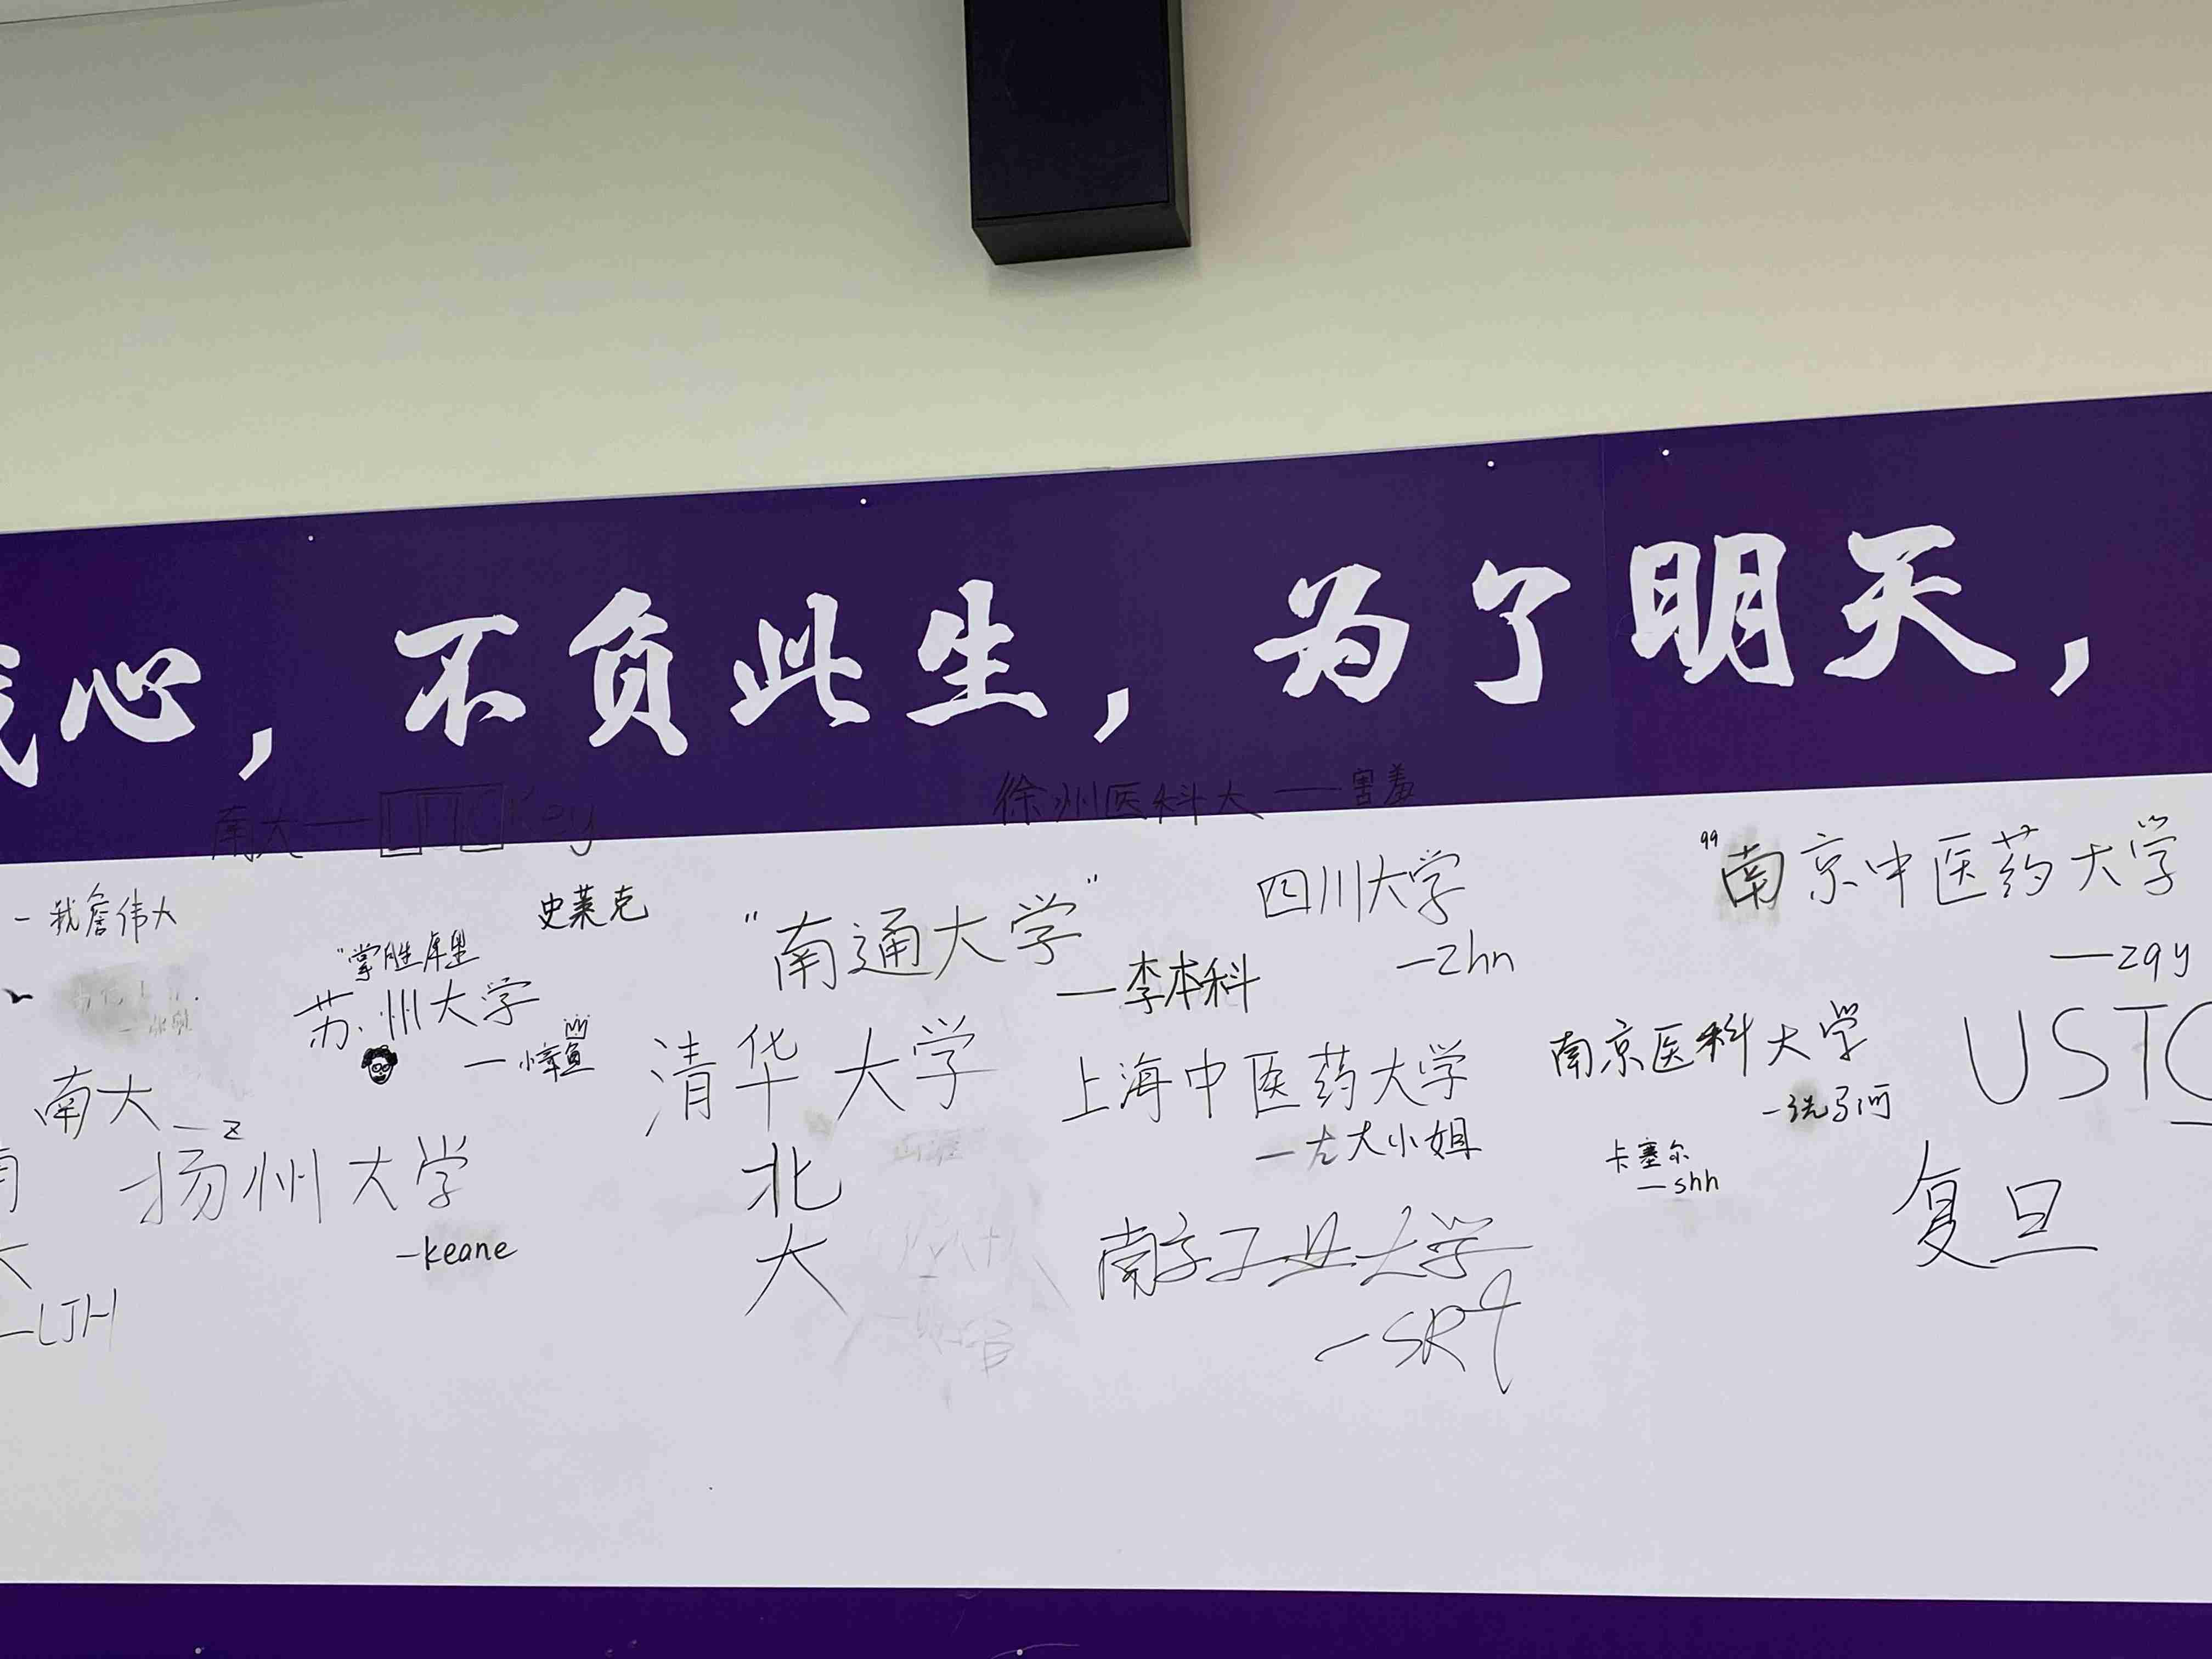 心，不负此生，为了明天，
南大
徐州医科大——害羞
-我詹伟大
史莱克
"南通大学"
—李本科
四川大学
—zhn
"南京中医药大学
—zqy
苏州大学
清华大学
上海中医药大学
大小姐
南京医科大学
USTC
南大
—z
扬州大学
—keane
北
大
卡塞尔
—shh
复旦
南京工业大学
—LJH